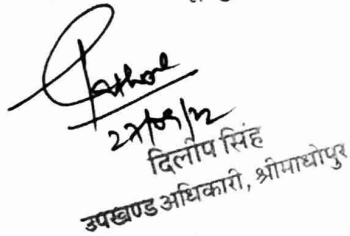 Rathore
दिलीप सिंह
उपखण्ड अधिकारी, श्रीमाधोपुर